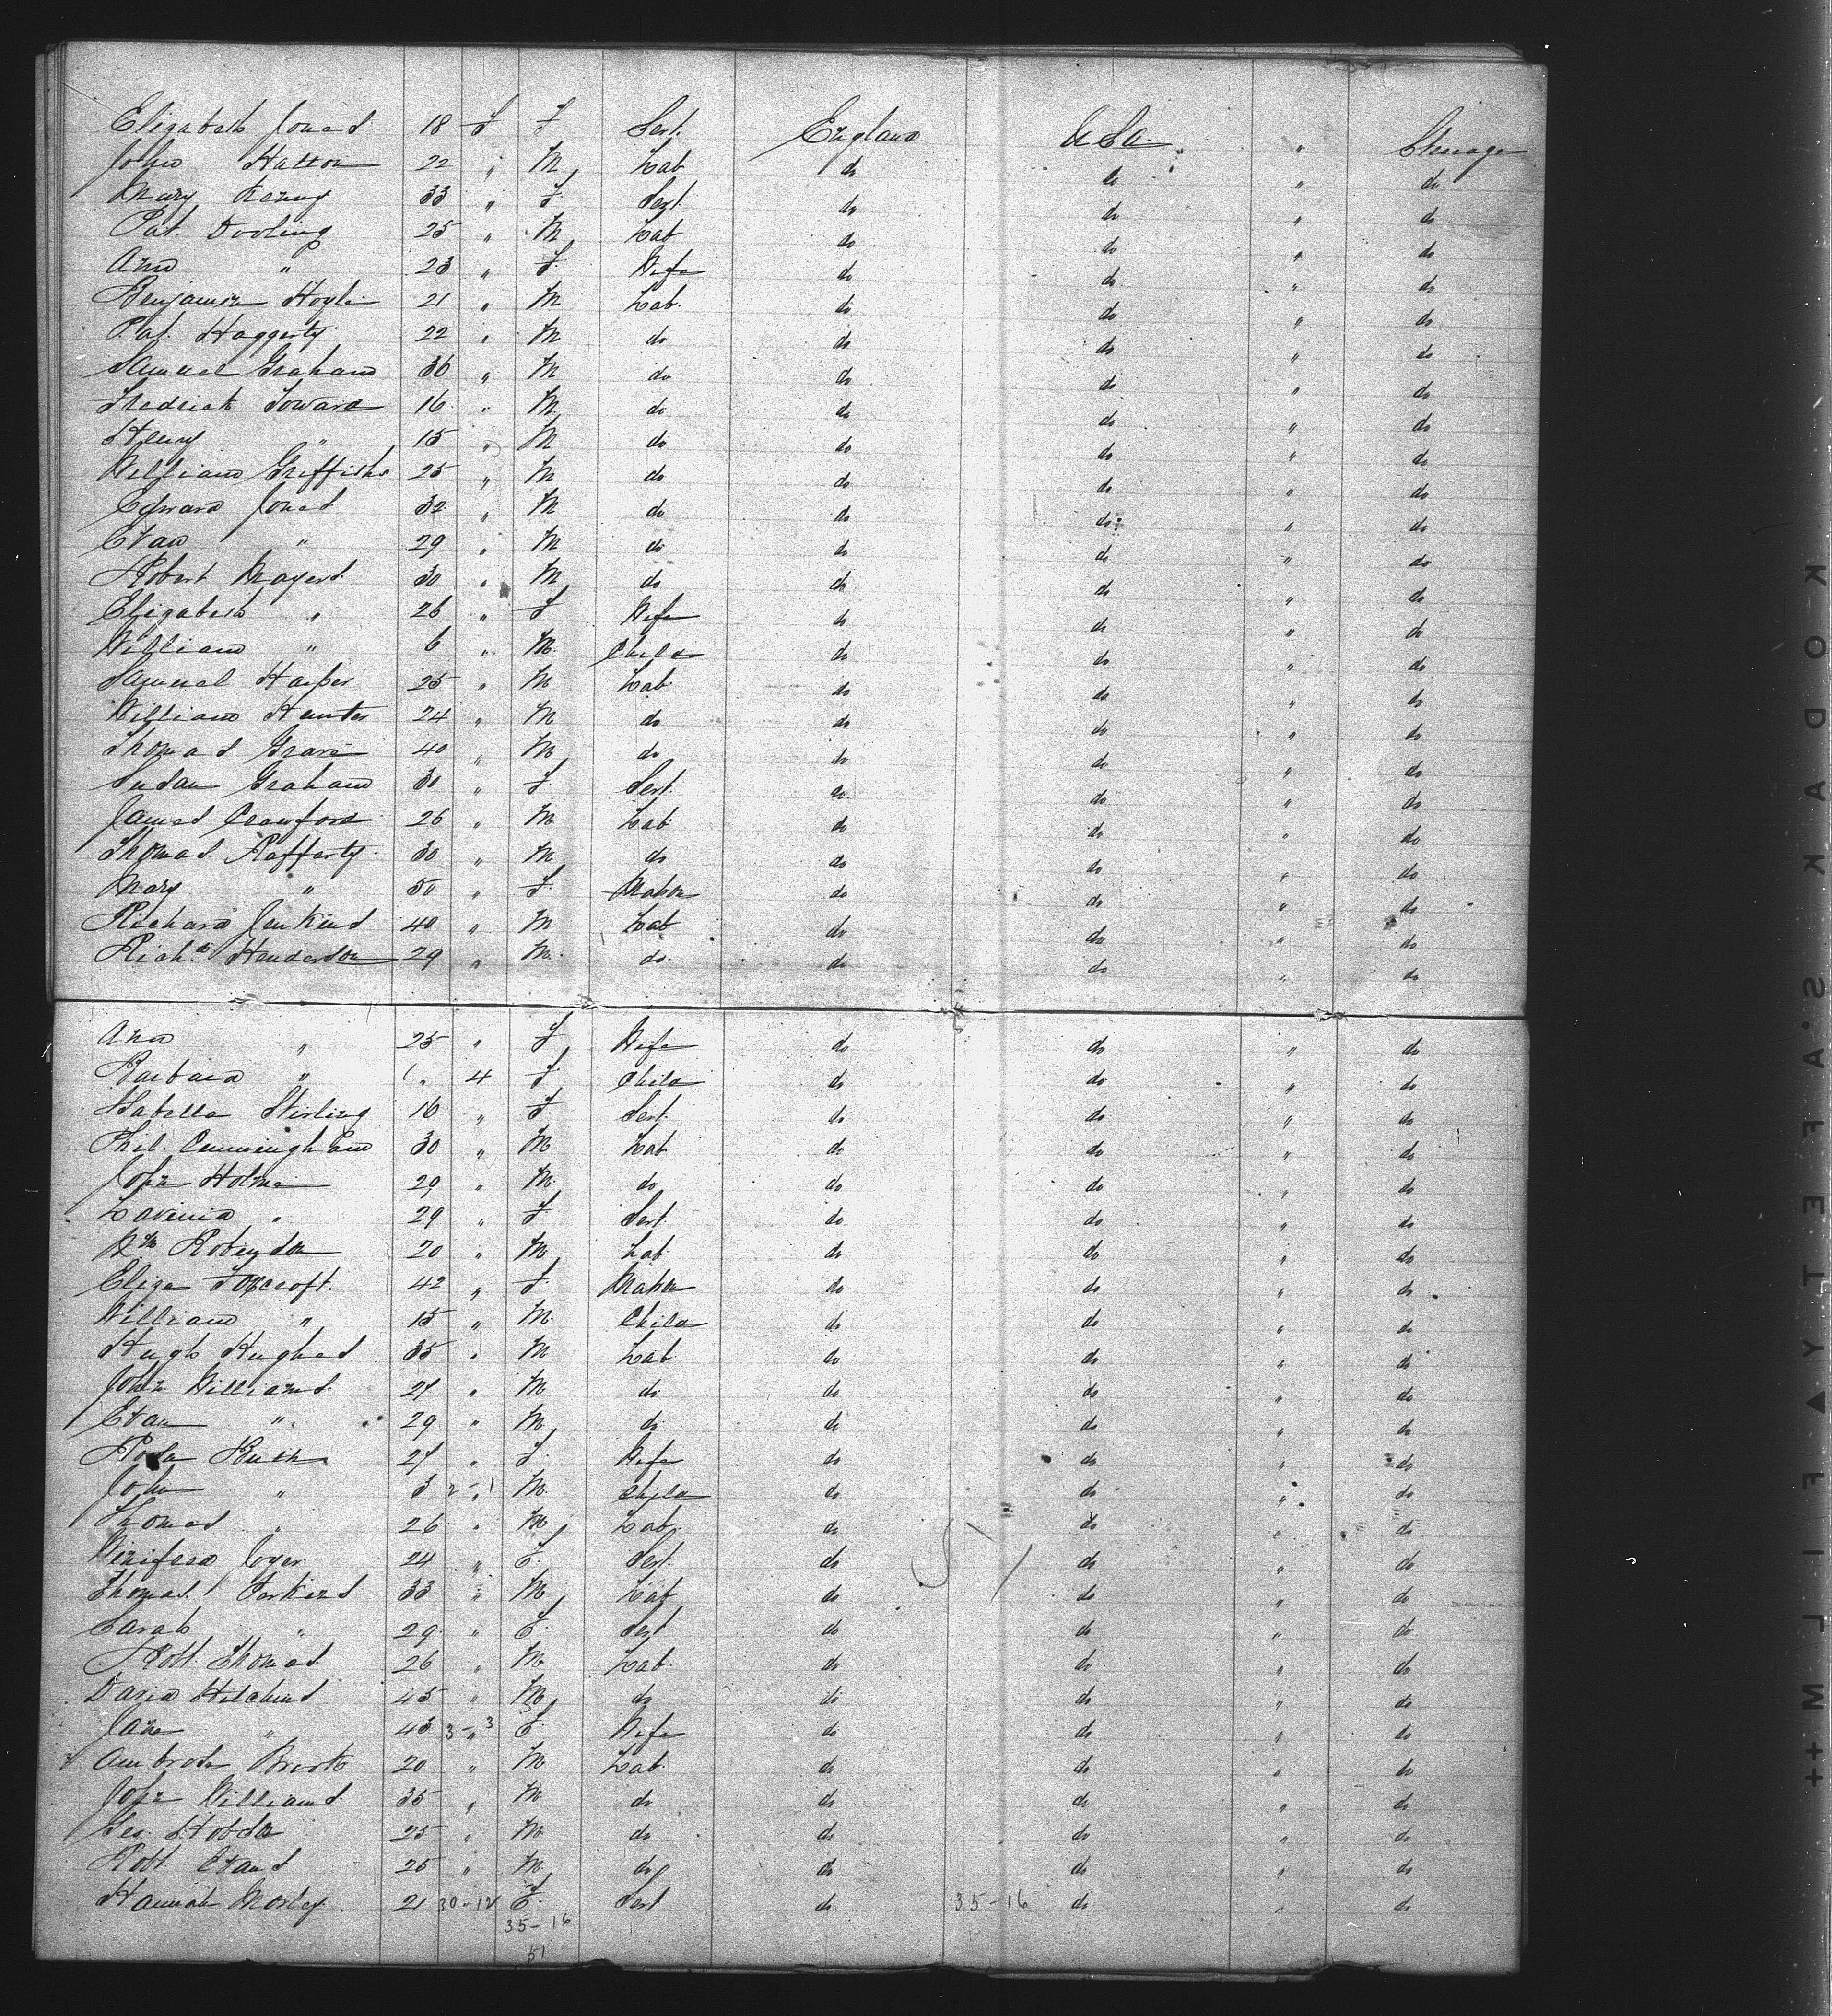 Elizabeth Jones 18 F Sert. England USA " Chicago
John Hatton 22 " M Lab do do " do
Mary Kenny 33 " F Sert. do do " do
Pat. Dooling 25 " M Lab do do " do
Ann " 23 " F. Wife do do " do
Benjamin Hoyle 21 " M Lab. do do " do
Pat. Haggerty 22 " M do do do " do
Samuel Graham 36 " M do do do " do
Fredrick Soward 16 " M do do do " do
Henry " 15 " M do do do " do
William Griffiths 25 " M do do do " do
Edward Jones 32 " M do do do " do
Evan " 29 " M do do do " do
Robert Mayers 30 " M do do do " do
Elizabeth " 26 " F Wife do do " do
William " 6 " M. Child do do " do
Samuel Harper 25 " M Lab. do do " do
William Hunter 24 " M do do do " do
Thomas 40 " M do do do " do
Susan Graham 30 " F Sert. do do " do
James Crawford 26 " M Lab do do " do
Thomas Rafferty 30 " M do do do " do
Mary " 50 " F. Matron do do " do
Richard Jenkins 40 " M Lab do do " do
Richd. Henderson 29 " M. do. do do " do
Ann " 25 " F Wife do do " do
Barbara " " 4 F Child do do " do
Isabella Stirling 16 " F Sert. do do " do
Phil. Cunningham 30 " M Lab do do " do
John Holme 29 " M. do do do " do
Lavinia " 29 " F Sert. do do " do
Wm Robinson 20 " M Lab do do " do
Eliza Foxcroft. 42 " F. Matron do do " do
William " 15 " M. Child do do " do
Hugh Hughes 35 " M Lab do do " do
John Williams 27 " M do do do " do
Evan " 29 " M. do do do " do
Rosa Bush 27 " F. Wife do do " do
John " 3 2-1 " M. Child do do " do
Thomas " 26 " M Lab. do do " do
Winifred Joyce 24 " F. Sert. do do " do
Thomas Parkins 33 " M Lab do do " do
Sarah " 29 " F. Sert do do " do
Robt. Thomas 26 " M Lab. do do " do
David Hitchins 45 " M do do do " do
Jane " 43 3-3 " F. Wife do do " do
Ambrose 20 " M Lab. do do " do
John Williams 35 " M do do do " do
Geo. Hobson 25 " M do do do " do
Robt. Evans 25 " M do do do " do
Hannah Morley 21 30-12 F. Sert do 35-16 do " do
35-16
51
KODAK SAFETY FILM